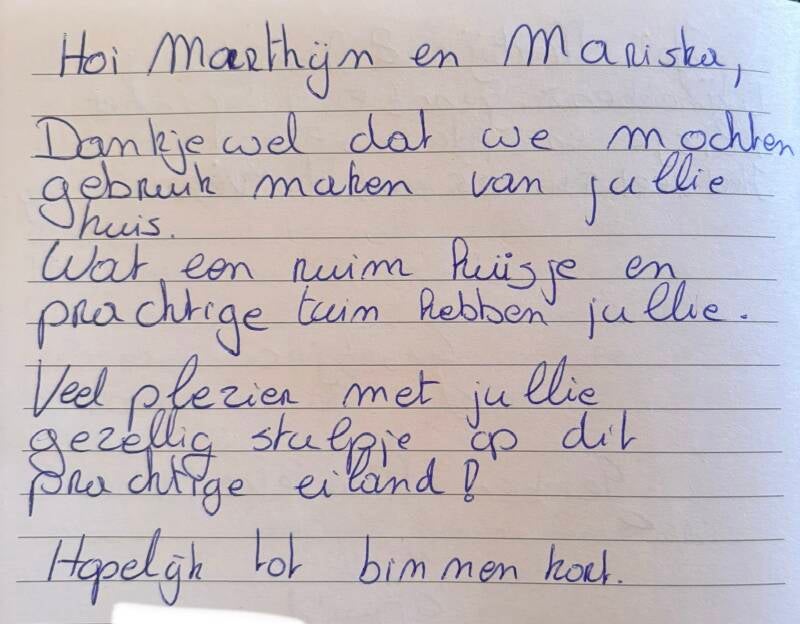 Hoi Marthijn en Mariska,
Dankjewel dat we mochten
gebruik maken van jullie
huis.
Wat een ruim huisje en
prachtige tuin hebben jullie.
Veel plezier met jullie
gezellig stulpje op dit
prachtige eiland!
Hopelijk tot binnen kort.